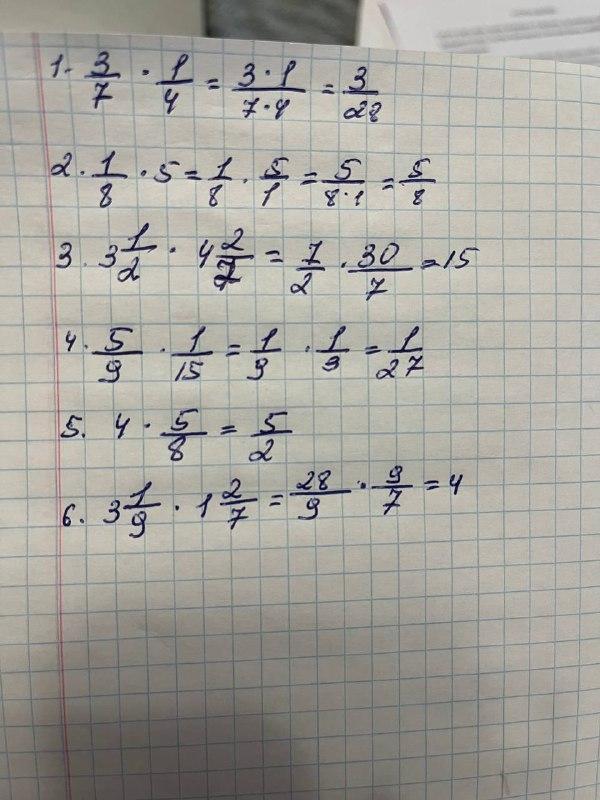 1. 3/7 · 1/4 = 3·1/7·4 = 3/28
2. 1/8 · 5 = 1/8 · 5/1 = 5/8·1 = 5/8
3. 3 1/2 · 4 2/7 = 7/2 · 30/7 = 15
4. 5/9 · 1/15 = 1/9 · 1/9 = 1/27
5. 4 · 5/8 = 5/2
6. 3 1/9 · 1 2/7 = 28/9 · 9/7 = 4